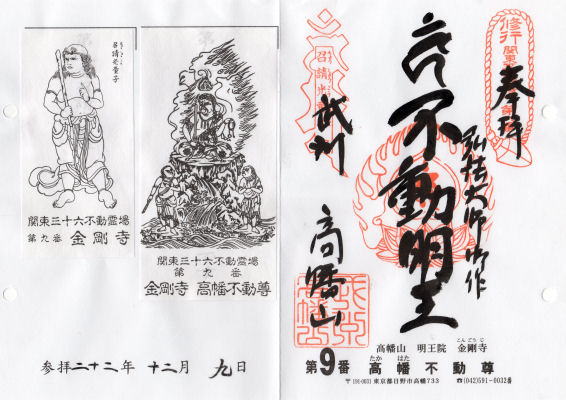 召請光童子
関東三十六不動霊場
第九番 金剛寺
関東三十六不動霊場
第九番
金剛寺 高幡不動尊
参拝二十二年 十二月 九日
修行
関東
奉拝
弘法大師御作
不動明王
武州
高幡山
高幡山 明王院 金剛寺
こんごうじ
第9番 高幡不動尊
たか はた
〒191-0031 東京都日野市高幡733 ☎(042)591-0032番